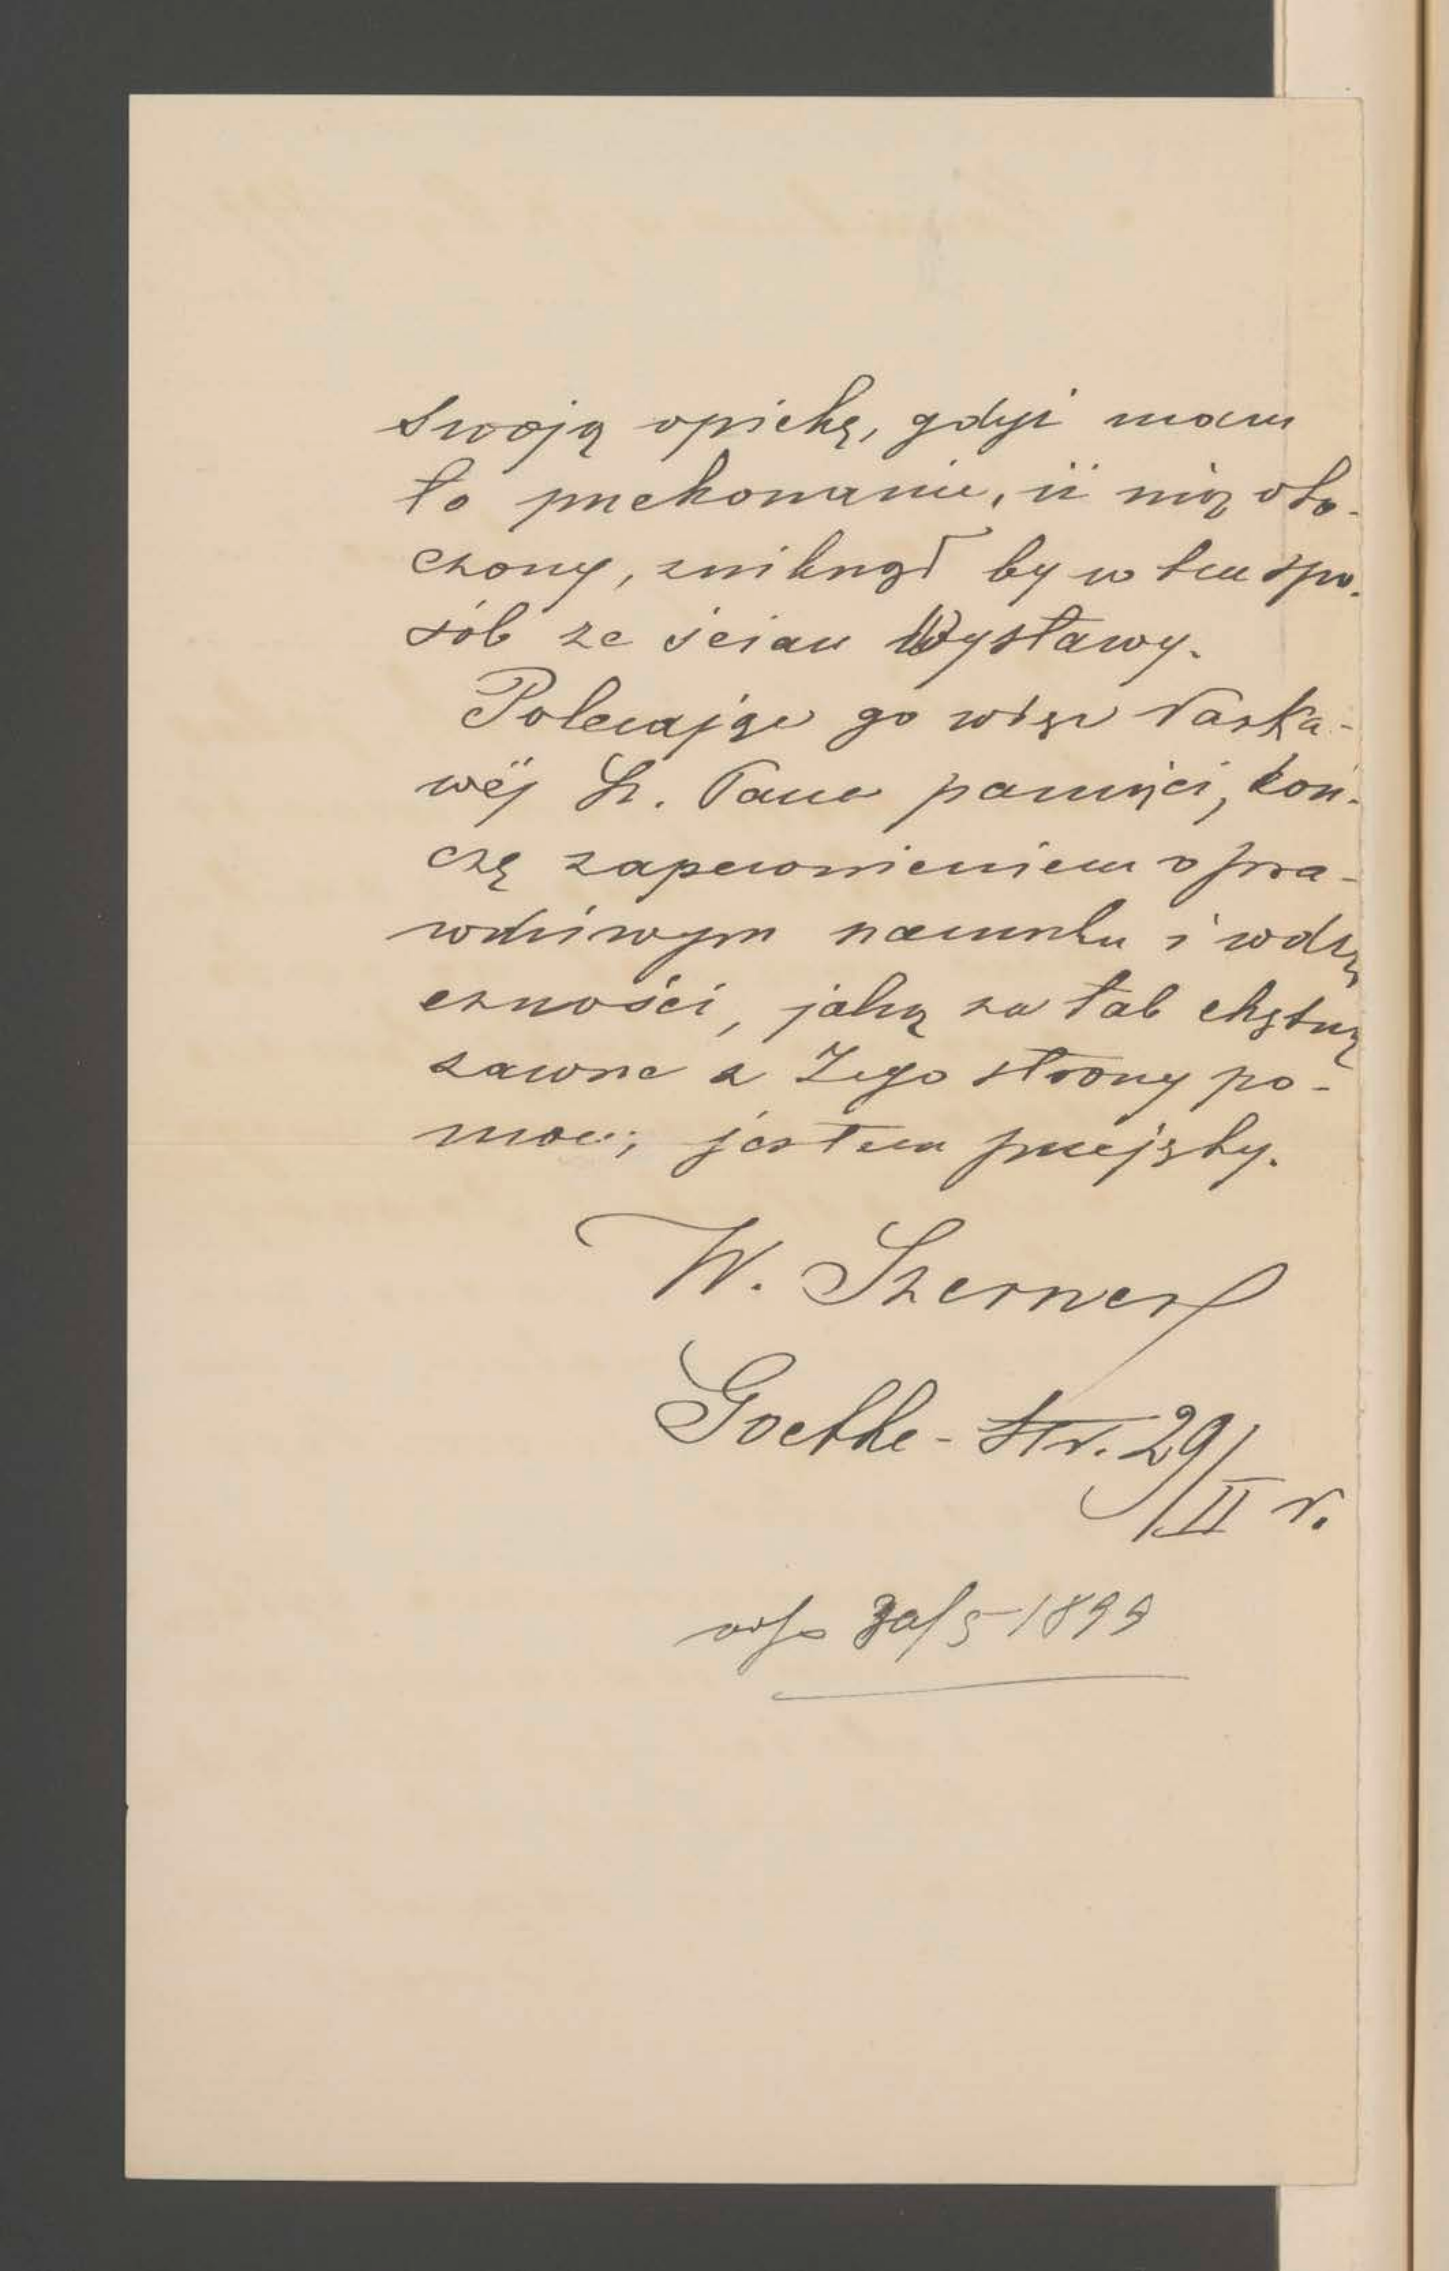 swoją opiekę, gdyż mam
to przekonanie, iż nią oto-
czony, zniknął by w ten spo-
sób ze ścian Wystawy.
Polecając go więc łaska-
wéj Sz. Pana pamięci, koń-
czę zapewnieniem o pra-
wdziwym szacunku i wdzię
czności, jaką za tak chętną
zawsze z Jego strony po-
moc, jestem przejęty.
W. Szerner
Goethe-str. 29/II r.
30/5 1899